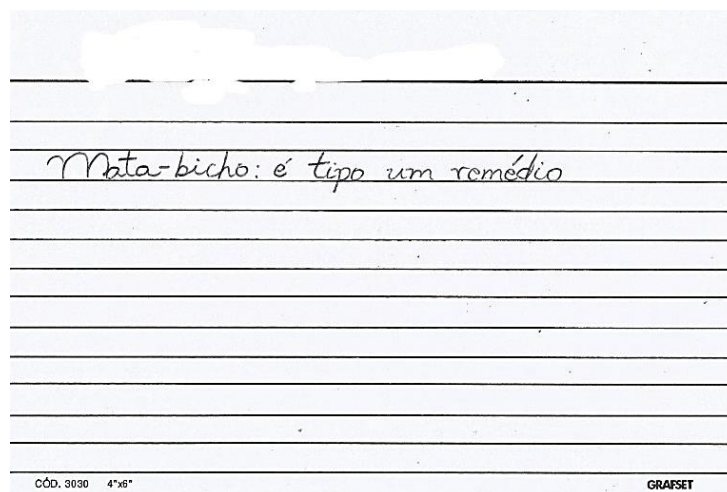 Mata-bicho: é tipo um remédio
CÓD. 3030 4"x6" GRAFSET